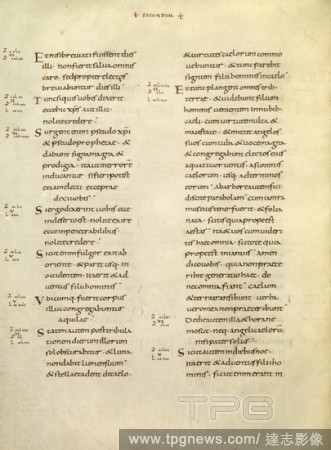 SECUNDUM
Et nisi breviati fuissent dies
illi non fieret salva omnis
caro sed propter electos
breviabuntur dies illi
Tunc si quis vobis dixerit
ecce hic xps aut illic
nolite credere
Surgent enim pseudo xpi
et pseudoprophetae et
dabunt signa magna et
prodigia ita ut in errorem
inducantur si fieri potest
etiam electi ecce prae
dixi vobis
Si ergo dixerint vobis ecce
in deserto est nolite exire
ecce in penetrabilibus
nolite credere
Sicut enim fulgor exit ab
oriente et paret usq· in
occidentem ita erit et ad
ventus filii hominis
Ubicumq· fuerit corpus
illuc congregabuntur
aquilae
Statim autem post tribula
tionem dierum illorum
sol obscurabitur et luna
non dabit lumen suum
et stellae cadent de caelo
et virtutes caelorum commo
vebuntur et tunc parebit
signum filii hominis in caelo
Et tunc plangent omnes trib
terrae et videbunt filium
hominis venientem in nubib
caeli cum virtute multa et
maiestate et mittet angelos
suos cum tuba et voce magna
et congregabunt electos eius
a quattuor ventis a summis
caelorum usq· ad terminos
eorum ab arbore autem fici
discite parabolam cum iam ra
mus eius tener fuerit et folia
nata scitis quia prope est
aestas ita et vos cum videri
tis haec omnia scitote quia
prope est in ianuis amen
dico vobis quia non praete
ribit generatio haec do
nec omnia fiant caelum
et terra transibunt verba
vero mea non praeteribunt
De die autem illa et hora ne
mo scit neq· angeli caelorum
nisi pater solus
Sicut autem in diebus noe
ita erit et adventus filii ho
minis sicut enim erant in
TPG
www.tpgnews.com / 達志影像